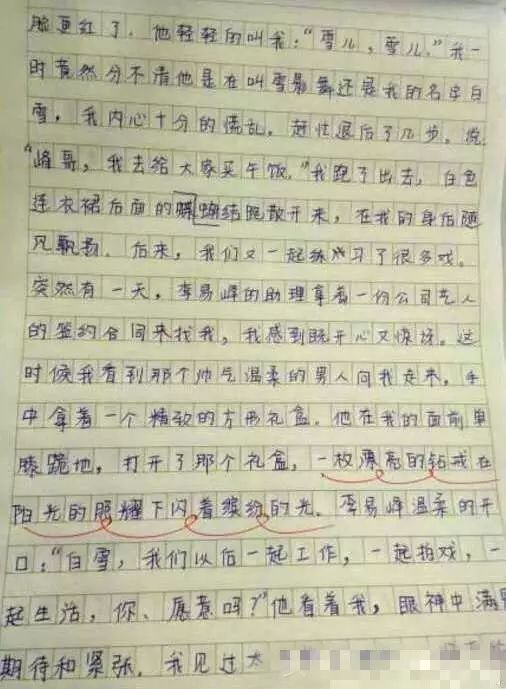 脸更红了，他轻轻的叫我：“雪儿，雪儿。”我一
时竟然分不清他是在叫雪影舞还是我的名字白
雪，我内心十分的慌乱，赶忙退后了几步。说
“峰哥，我去给大家买午饭。”我跑了出去，白色
连衣裙后面的蝴蝶结脱散开来，在我的身后随
风飘扬。后来，我们又一起练习了很多戏。
突然有一天，李易峰的助理拿着一份公司艺人
的签约合同来找我，我感到既开心又惊讶。这
时候我看到那个帅气温柔的男人向我走来，手
中拿着一个精致的方形礼盒，他在我的面前单
膝跪地，打开了那个礼盒，一枚漂亮的钻戒在
阳光的照耀下闪着缤纷的光，李易峰温柔的开
口：“白雪，我们以后一起工作，一起拍戏，一
起生活，你、愿意吗？”他看着我，眼神中满是
期待和紧张，我见过太